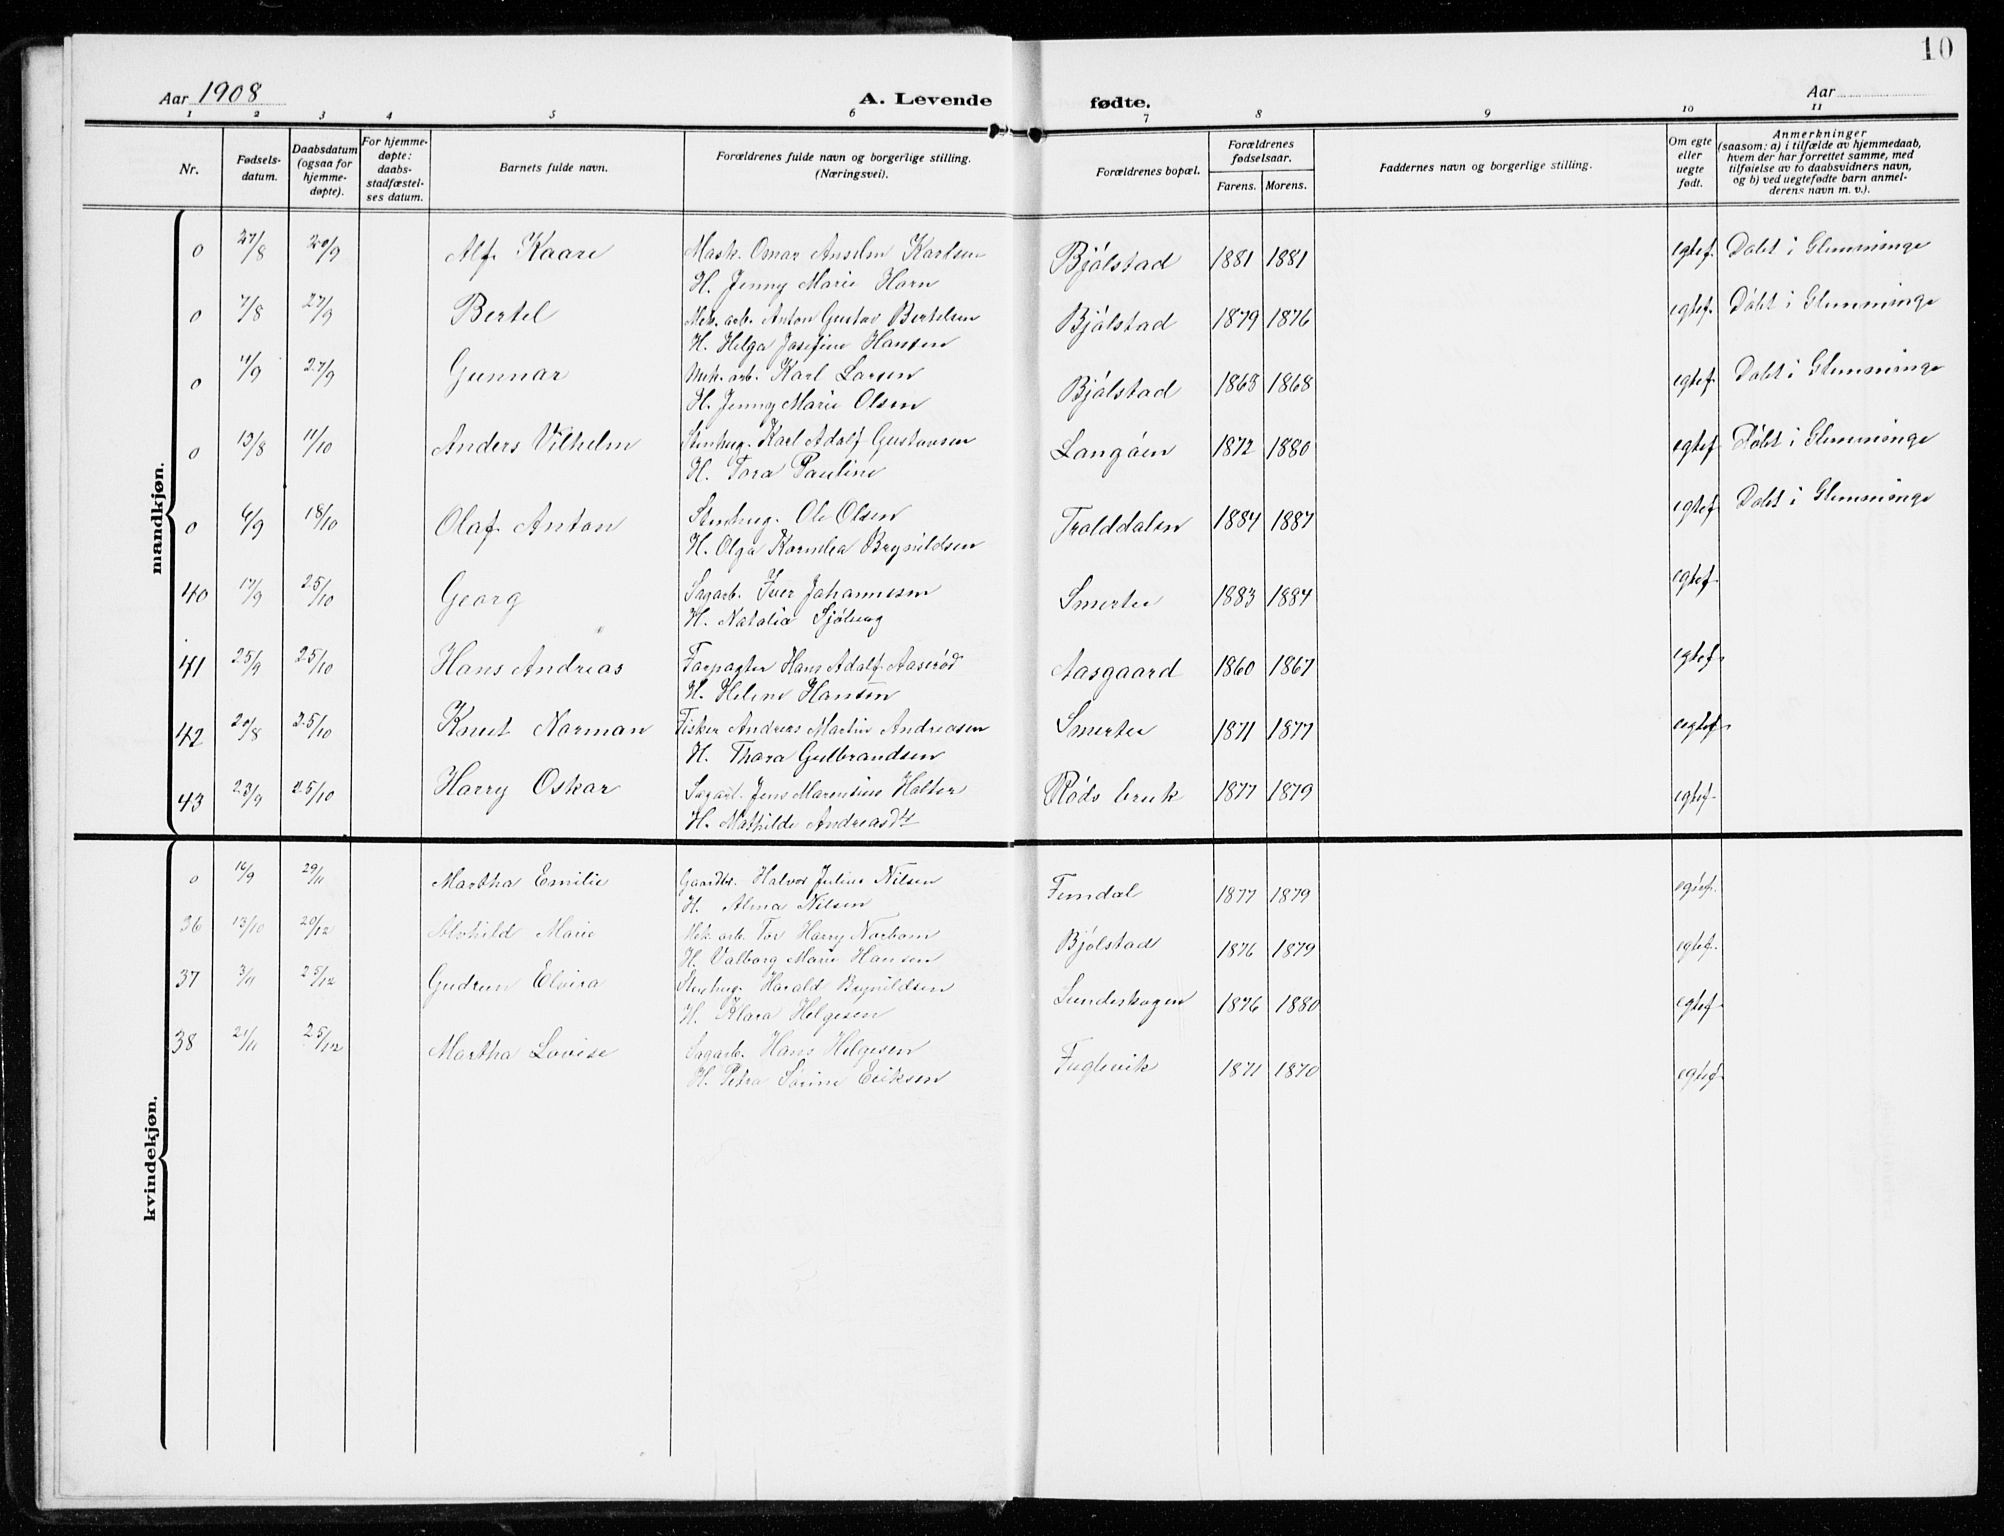 10
Aar 1908 A. Levende fødte. Aar
1 2 3 4 5 6 7 8 9 10 11
Nr. Fødsels-datum. Daabsdatum (ogsaa for hjemme-døpte). For hjemme-døpte: daabs-stadfæstel-ses datum. Barnets fulde navn. Forældrenes fulde navn og borgerlige stilling. (Næringsvei). Forældrenes bopæl. Forældrenes fødselsaar. Farens. Morens. Faddernes navn og borgerlige stilling. Om egte eller uegte født. Anmerkninger (saasom: a) i tilfælde av hjemmedaab, hvem der har forrettet samme, med tilføielse av to daabsvidners navn, og b) ved uegtefødte barn anmel-derens navn m. v.).
mandkjøn.
0 27/8 20/9 Alf Kaare Mask. Omar Anselm Karlsen Bjølstad 1881 1881 egtef. Døbt i Glemminge
H. Jenny Marie Horn
0 7/8 27/9 Bertel Mek. arb. Anton Gustav Bertelsen Bjølstad 1879 1876 egtef. Døbt i Glemminge
H. Helga Josefine Hansen
0 11/9 27/9 Gunnar Mek. arb. Karl Larsen Bjølstad 1868 1868 egtef. Døbt i Glemminge
H. Jenny Marie Olsen
0 13/8 11/10 Anders Vilhelm Stenhug. Karl Adolf Gustavsen Langøen 1872 1880 egtef. Døbt i Glemminge
H. Tora Pauline
0 6/9 18/10 Olaf Anton Stenhug. Ole Olsen Trolddalen 1884 1887 egtef. Døbt i Glemminge
H. Olga Kornelia Brynildsen
40 17/9 25/10 Georg Sagarb. Iver Johannesen Smertu 1883 1884 egtef.
H. Natalia Sjølung
41 25/9 25/10 Hans Andreas Forpagter Hans Adolf Aaserød Aasgaard 1860 1867 egtef.
H. Helene Hansen
42 20/8 25/10 Knut Norman Fisker Anders Martin Andreasen Smertu 1871 1877 egtef.
H. Thora Gulbrandsen
43 23/9 25/10 Harry Oskar Sagarb. Jens Marentius Holter Røds bruk 1877 1879 egtef.
H. Mathilde Andreasdt
kvindekjøn.
0 16/9 29/11 Martha Emilie Gaardbr. Halvor Julius Nilsen Femdal 1877 1879 egtef.
H. Alma Nilsen
36 13/10 20/12 Alvhild Marie Mek. arb. Tor Harry Norbom Bjølstad 1876 1879 egtef.
H. Valborg Marie Hansen
37 3/11 25/12 Gudrun Elvira Stenhug. Harald Brynildsen Lunderhagen 1876 1880 egtef.
H. Klara Helgesen
38 21/11 25/12 Martha Lovise Sagarb. Hans Helgesen Fuglevik 1871 1870 egtef.
H. Petra Sørine Eriksen